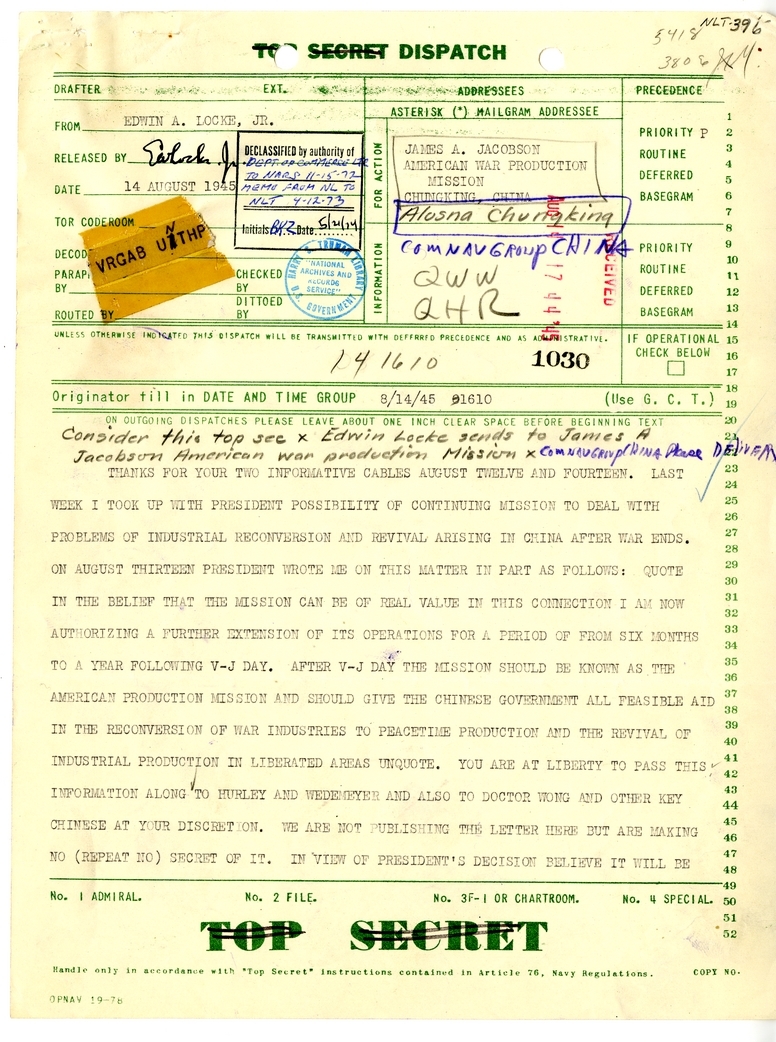 NLT-396
5418
3808
TOP SECRET DISPATCH
DRAFTER EXT. ADDRESSEES PRECEDENCE
ASTERISK (*) MAILGRAM ADDRESSEE
FROM EDWIN A. LOCKE, JR.
RELEASED BY EALocke, Jr
DATE 14 AUGUST 1945
TOR CODEROOM
DECOD
PARAP
BY
ROUTED BY
CHECKED
BY
DITTOED
BY
DECLASSIFIED by authority of
DEPT. OF COMMERCE LTR
TO NARS 11-15-72
MEMO FROM NL TO
NLT 4-12-73
Initials Date 5/2/74
VRGAB UNTHP
HARRY S. TRUMAN LIBRARY
"NATIONAL
ARCHIVES AND
RECORDS
SERVICE"
U.S. GOVERNMENT
FOR ACTION
JAMES A. JACOBSON
AMERICAN WAR PRODUCTION
MISSION
CHUNGKING, CHINA
Alusna Chungking
INFORMATION
COMNAVGROUP CHINA
QWW
QHR
RECEIVED
PRIORITY P
ROUTINE
DEFERRED
BASEGRAM
PRIORITY
ROUTINE
DEFERRED
BASEGRAM
UNLESS OTHERWISE INDICATED THIS DISPATCH WILL BE TRANSMITTED WITH DEFERRED PRECEDENCE AND AS ADMINISTRATIVE.
IF OPERATIONAL
CHECK BELOW
141610 1030
Originator fill in DATE AND TIME GROUP 8/14/45 1610 (Use G. C. T.)
ON OUTGOING DISPATCHES PLEASE LEAVE ABOUT ONE INCH CLEAR SPACE BEFORE BEGINNING TEXT
Consider this top sec x Edwin Locke sends to James A
Jacobson American war production Mission x COMNAVGROUP CHINA Please DELIVER
THANKS FOR YOUR TWO INFORMATIVE CABLES AUGUST TWELVE AND FOURTEEN. LAST
WEEK I TOOK UP WITH PRESIDENT POSSIBILITY OF CONTINUING MISSION TO DEAL WITH
PROBLEMS OF INDUSTRIAL RECONVERSION AND REVIVAL ARISING IN CHINA AFTER WAR ENDS.
ON AUGUST THIRTEEN PRESIDENT WROTE ME ON THIS MATTER IN PART AS FOLLOWS: QUOTE
IN THE BELIEF THAT THE MISSION CAN BE OF REAL VALUE IN THIS CONNECTION I AM NOW
AUTHORIZING A FURTHER EXTENSION OF ITS OPERATIONS FOR A PERIOD OF FROM SIX MONTHS
TO A YEAR FOLLOWING V-J DAY. AFTER V-J DAY THE MISSION SHOULD BE KNOWN AS THE
AMERICAN PRODUCTION MISSION AND SHOULD GIVE THE CHINESE GOVERNMENT ALL FEASIBLE AID
IN THE RECONVERSION OF WAR INDUSTRIES TO PEACETIME PRODUCTION AND THE REVIVAL OF
INDUSTRIAL PRODUCTION IN LIBERATED AREAS UNQUOTE. YOU ARE AT LIBERTY TO PASS THIS
INFORMATION ALONG TO HURLEY AND WEDEMEYER AND ALSO TO DOCTOR WONG AND OTHER KEY
CHINESE AT YOUR DISCRETION. WE ARE NOT PUBLISHING THE LETTER HERE BUT ARE MAKING
NO (REPEAT NO) SECRET OF IT. IN VIEW OF PRESIDENT'S DECISION BELIEVE IT WILL BE
1
2
3
4
5
6
7
8
9
10
11
12
13
14
15
16
17
18
19
20
21
22
23
24
25
26
27
28
29
30
31
32
33
34
35
36
37
38
39
40
41
42
43
44
45
46
47
48
49
50
51
52
No. 1 ADMIRAL. No. 2 FILE. No. 3F-1 OR CHARTROOM. No. 4 SPECIAL.
TOP SECRET
Handle only in accordance with "Top Secret" instructions contained in Article 76, Navy Regulations. COPY NO.
OPNAV 19-78